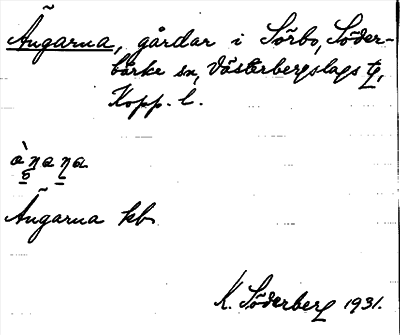 Ängarna, gårdar i Sörbo, Söder-
bärke sn, Västerbergslags tg,
Kopp. l.
Ängarna kb
K. Söderberg 1931.